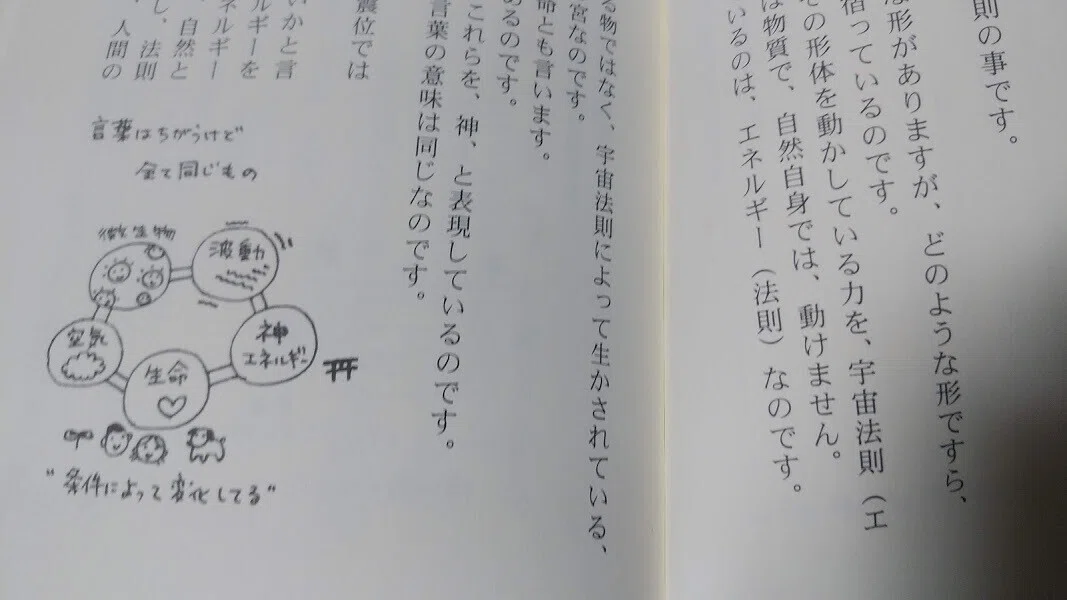 則の事です。
な形がありますが、どのような形ですら、
宿っているのです。
その形体を動かしている力を、宇宙法則（エ
は物質で、自然自身では、動けません。
いるのは、エネルギー（法則）なのです。
る物ではなく、宇宙法則によって生かされている、
宮なのです。
命とも言います。
あるのです。
これらを、神、と表現しているのです。
言葉の意味は同じなのです。
震位では
いかと言
ルギーを
ネルギー
、自然と
し、法則
、人間の
言葉はちがうけど
全て同じもの
微生物
波動
空気
神
エネルギー
生命
"条件によって変化してる"